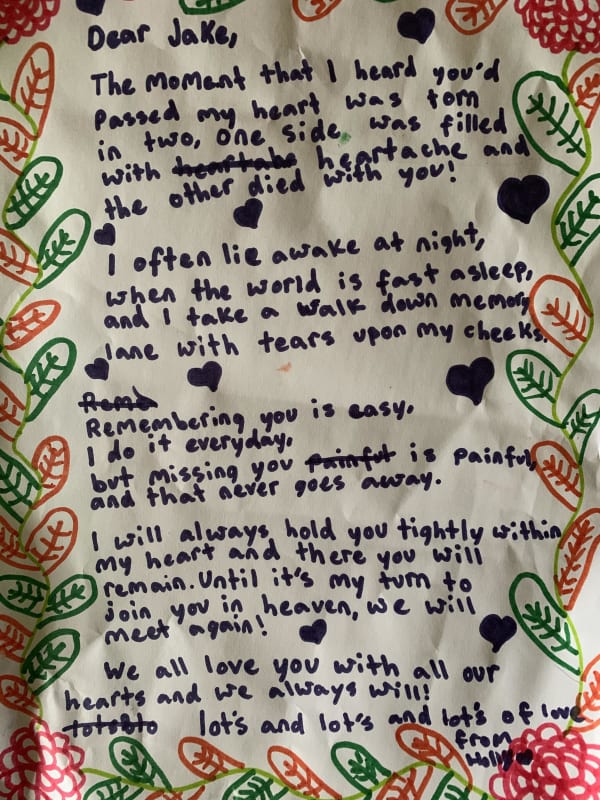 Dear Jake,
The moment that I heard you'd
passed my heart was torn
in two, one side was filled
with heartake heartache and
the other died with you!
I often lie awake at night,
when the world is fast asleep,
and I take a walk down memory
lane with tears upon my cheeks.
Reme
Remembering you is easy.
I do it everyday.
but missing you painful is painful,
and that never goes away.
I will always hold you tightly within
my heart and there you will
remain. Until it's my turn to
join you in heaven, we will
meet again!
We all love you with all our
hearts and we always will!
lot's and lot's and lot's of love
from
Holly